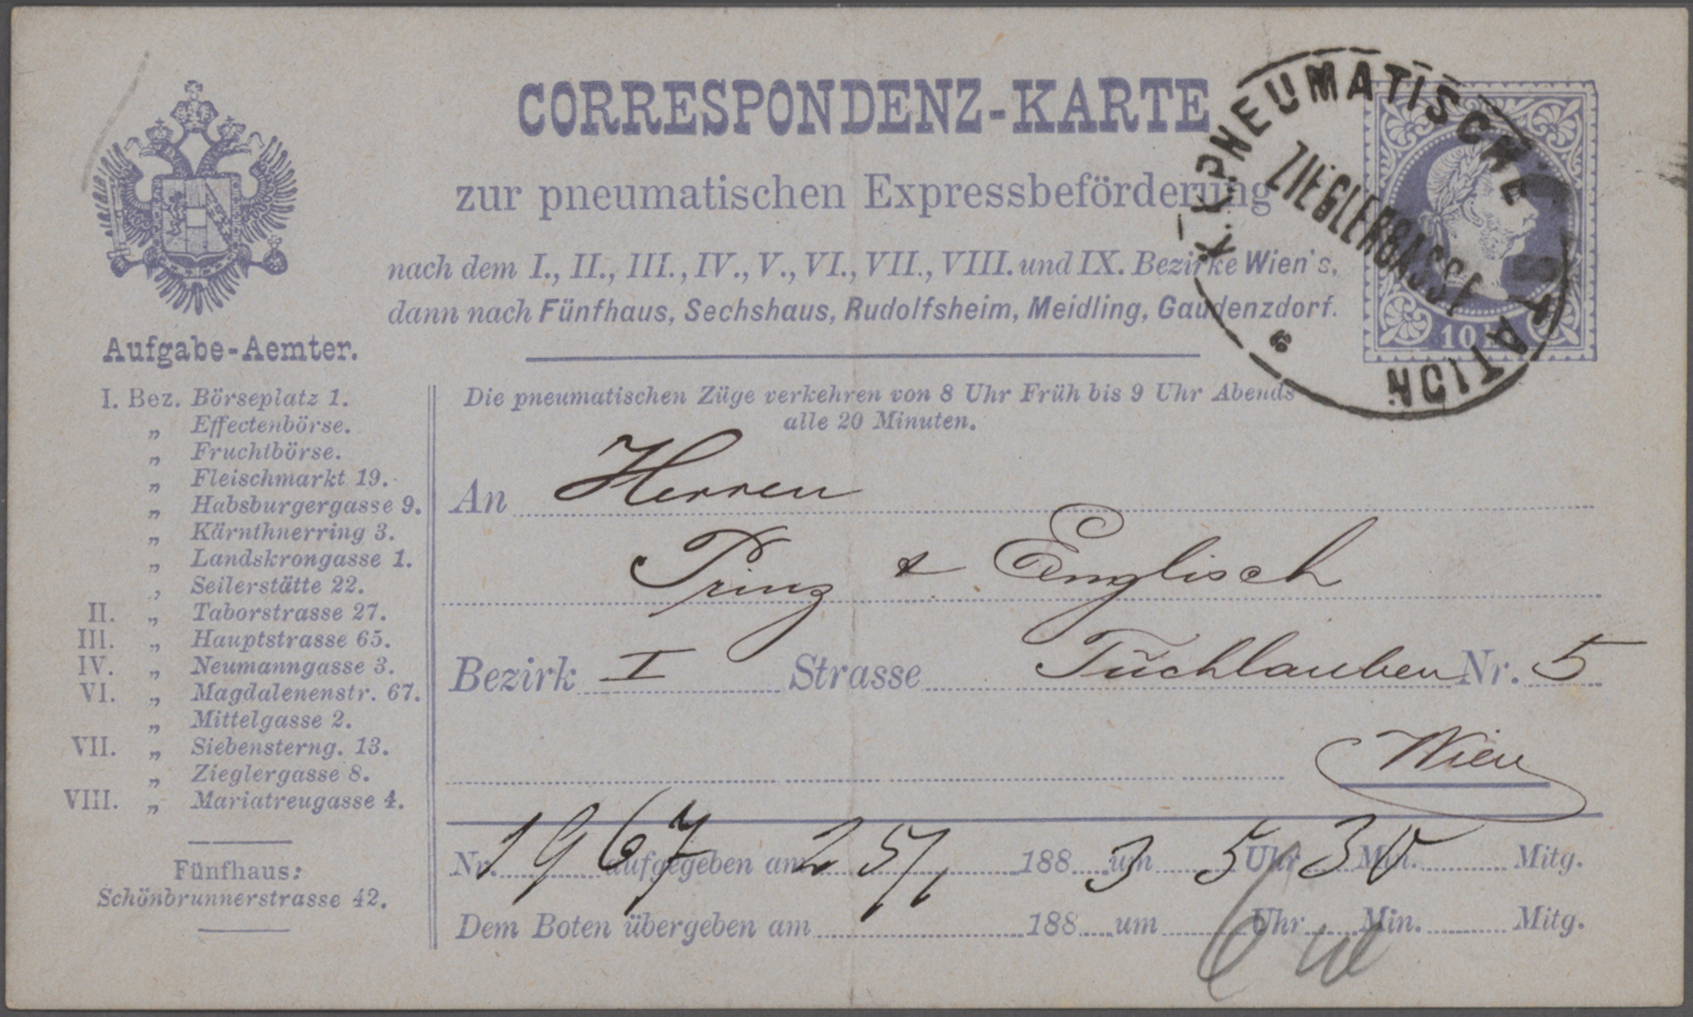 CORRESPONDENZ-KARTE
zur pneumatischen Expressbeförderung
nach dem I., II., III., IV., V., VI., VII., VIII. und IX. Bezirke Wien's,
dann nach Fünfhaus, Sechshaus, Rudolfsheim, Meidling, Gaudenzdorf.
K.K. PNEUMATISCHE STATION
ZIEGLERGASSE
10
Aufgabe-Aemter.
I. Bez. Börseplatz 1.
„ Effectenbörse.
„ Fruchtbörse.
„ Fleischmarkt 19.
„ Habsburgergasse 9.
„ Kärnthnerring 3.
„ Landskrongasse 1.
„ Seilerstätte 22.
II. „ Taborstrasse 27.
III. „ Hauptstrasse 65.
IV. „ Neumanngasse 3.
VI. „ Magdalenenstr. 67.
„ Mittelgasse 2.
VII. „ Siebensterng. 13.
„ Zieglergasse 8.
VIII. „ Mariatreugasse 4.
Fünfhaus:
Schönbrunnerstrasse 42.
Die pneumatischen Züge verkehren von 8 Uhr Früh bis 9 Uhr Abends
alle 20 Minuten.
An Herren
Prinz & Englisch
Bezirk I Strasse Tuchlauben Nr. 5
Wien
Nr. 1967 aufgegeben am 25/1 188 3 um 5 Uhr 30 Min. Mitg.
Dem Boten übergeben am 188 um Uhr Min. Mitg.